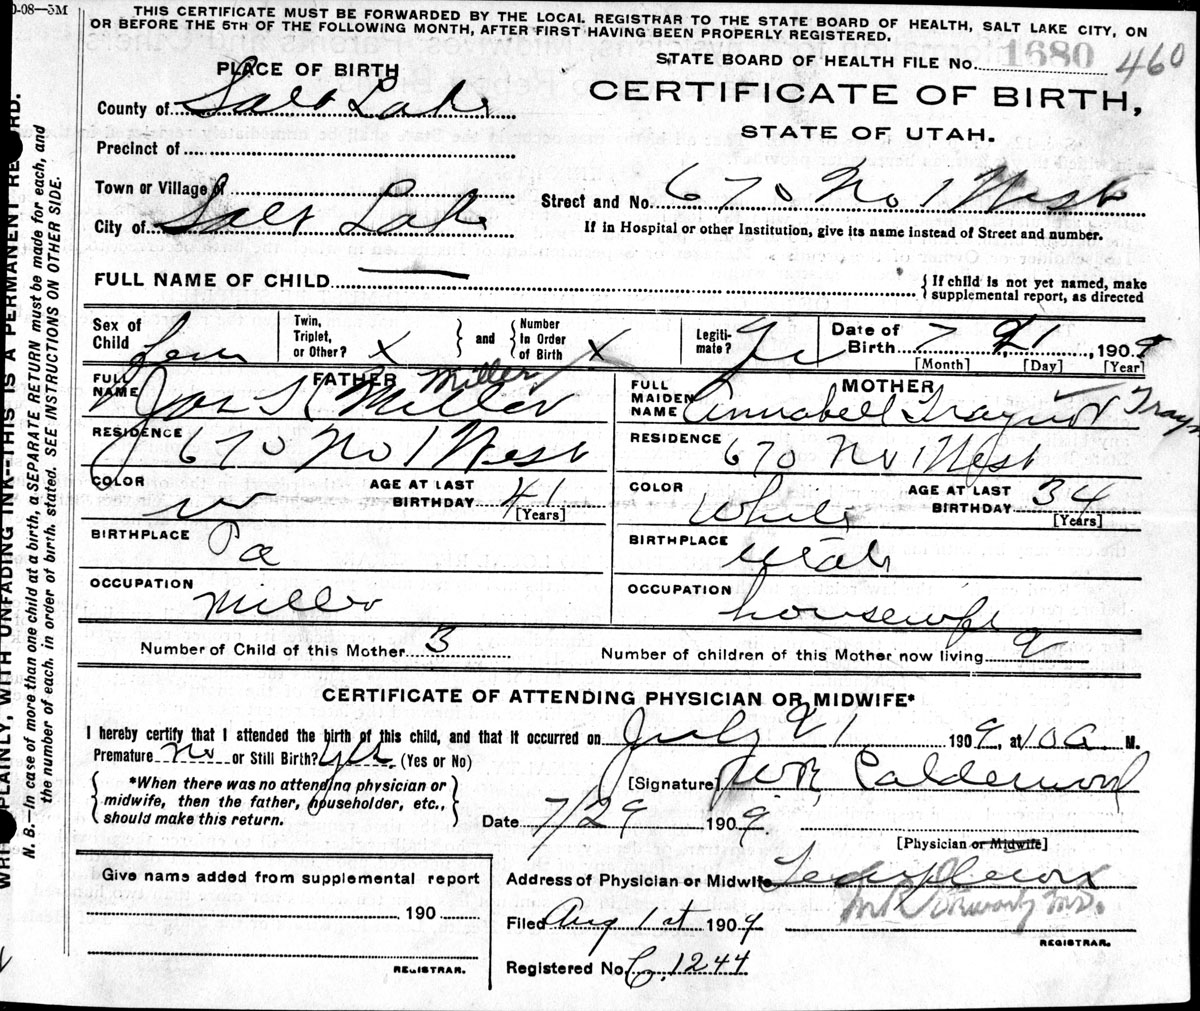 0-08—5M
THIS CERTIFICATE MUST BE FORWARDED BY THE LOCAL REGISTRAR TO THE STATE BOARD OF HEALTH, SALT LAKE CITY, ON
OR BEFORE THE 5TH OF THE FOLLOWING MONTH, AFTER FIRST HAVING BEEN PROPERLY REGISTERED.
STATE BOARD OF HEALTH FILE No. 1680 460
PLACE OF BIRTH
CERTIFICATE OF BIRTH,
STATE OF UTAH.
County of Salt Lake
Precinct of
Town or Village of
City of Salt Lake
Street and No. 670 No 1 West
If in Hospital or other Institution, give its name instead of Street and number.
FULL NAME OF CHILD —
If child is not yet named, make
supplemental report, as directed
Sex of Child Fem
Twin, Triplet, or Other? X and Number In Order of Birth X
Legitimate? Ye
Date of Birth 7 21, 1909
[Month] [Day] [Year]
FATHER
FULL NAME Jos K Miller Miller
MOTHER
FULL MAIDEN NAME Annabell Traynor
RESIDENCE 670 No 1 West
RESIDENCE 670 No 1 West
COLOR W AGE AT LAST BIRTHDAY 41 [Years]
COLOR White AGE AT LAST BIRTHDAY 34 [Years]
BIRTHPLACE Pa
BIRTHPLACE Utah
OCCUPATION Miller
OCCUPATION housewife
Number of Child of this Mother 3
Number of children of this Mother now living 2
CERTIFICATE OF ATTENDING PHYSICIAN OR MIDWIFE*
I hereby certify that I attended the birth of this child, and that it occurred on July 21 1909, at 10 a M.
Premature no or Still Birth? Yes (Yes or No)
*When there was no attending physician or
midwife, then the father, householder, etc.,
should make this return.
[Signature] Calderwood
Date 7/29 1909
[Physician or Midwife]
Give name added from supplemental report
190
REGISTRAR.
Address of Physician or Midwife Templeton
Filed Aug 1st 1909
M.D.
REGISTRAR.
Registered No. C. 1244
PLAINLY, WITH UNFADING INK--THIS IS A PERMANENT RECORD.
N. B.—In case of more than one child at a birth, a SEPARATE RETURN must be made for each, and
the number of each, in order of birth, stated. SEE INSTRUCTIONS ON OTHER SIDE.